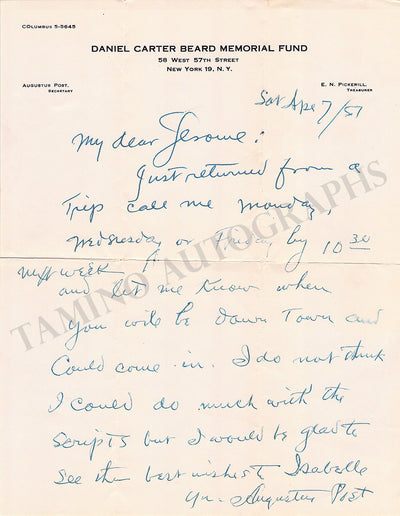 COlumbus 5-5645
DANIEL CARTER BEARD MEMORIAL FUND
58 West 57th Street
New York 19, N. Y.
Augustus Post,
Secretary
E. N. Pickerill,
Treasurer
Sat Apr 7/57
My dear Jerome:
Just returned from a
Trip call me Monday,
Wednesday or Friday by 10 30
next week
and let me know when
you will be down Town and
Could come in. I do not think
I could do much with the
scripts but I would be glad to
see them best wishes to Isabelle
Yrs. Augustus Post
TAMINO AUTOGRAPHS